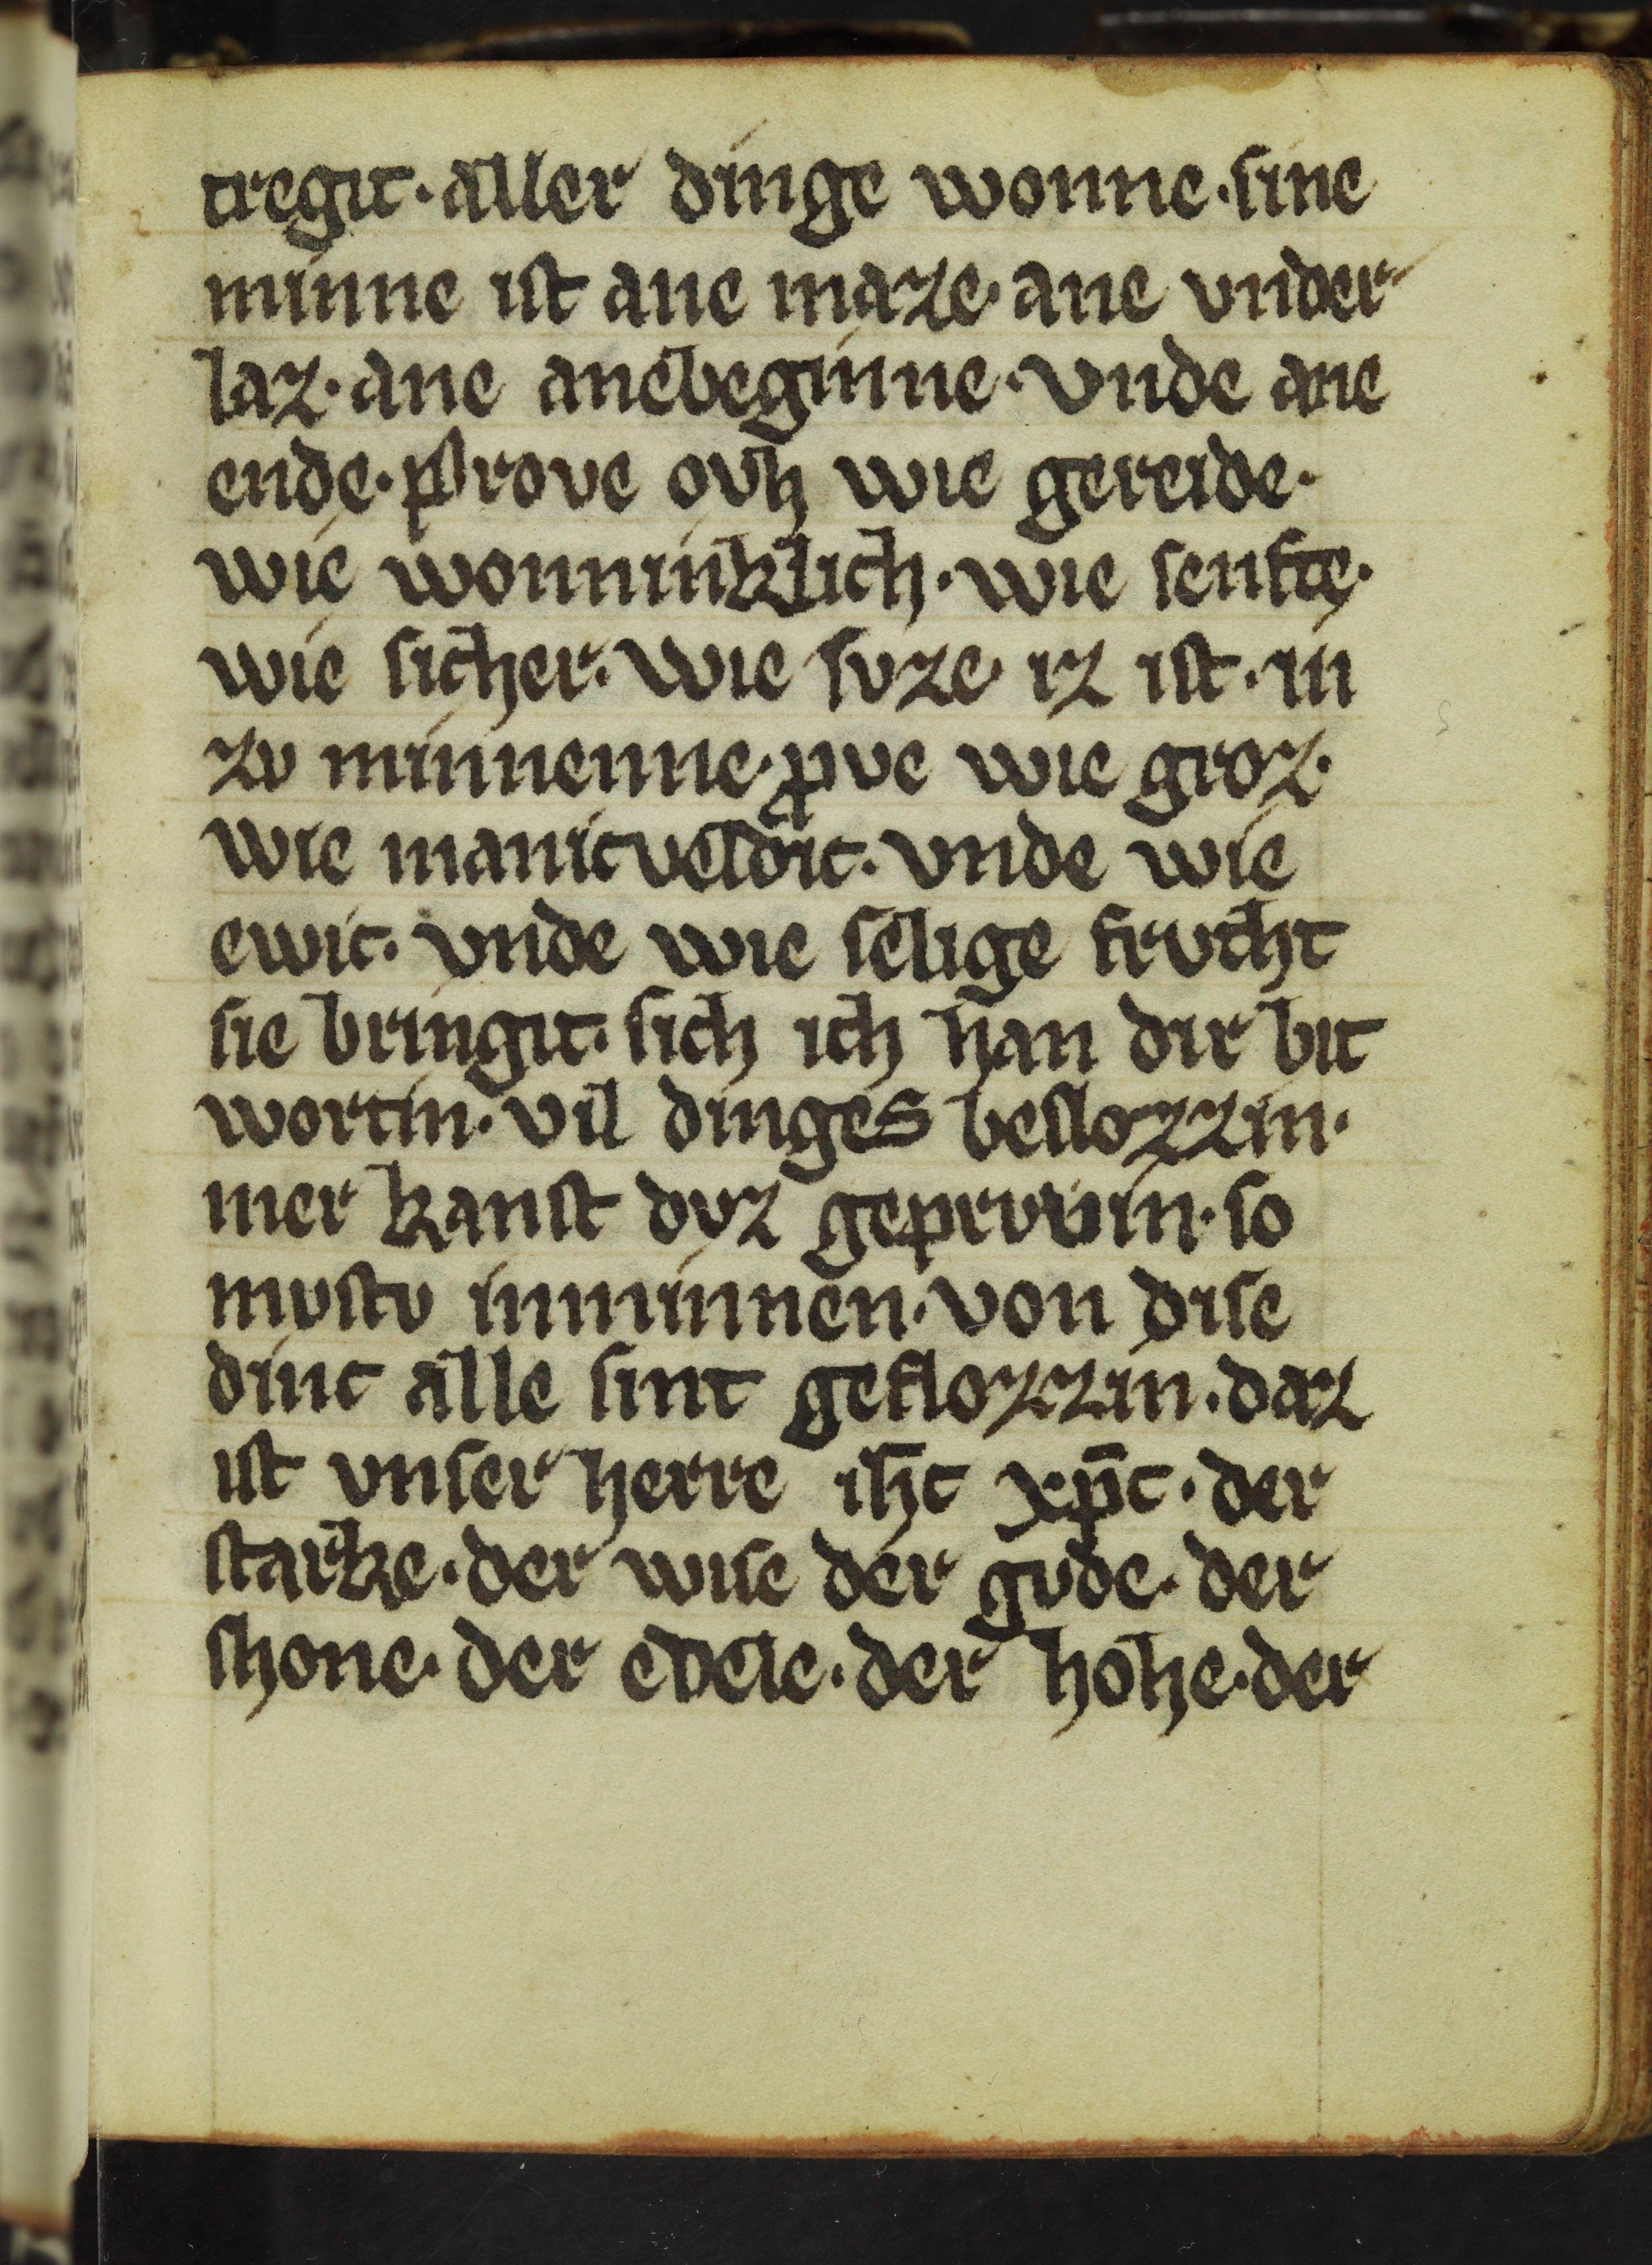 tregit · aller dinge wonne · sine
minne ist ane maze · ane vnder
laz · ane anebeginne · vnde ane
ende · prove ovh wie gereide ·
wie wonninklich · wie senfte ·
wie sicher · wie svze iz ist · in
zv minnenne · ꝓve wie groz ·
wie manicveldic · vnde wie
ewic · vnde wie selige frvcht
sie bringit · sich ich han dir bit
wortin · vil dinges beslozzin ·
mer kanst dvz geprvvin · so
mvstv inminnen · von dise
dinc alle sint geflozzin · daz
ist vnser herre ih̄c xp̄c · der
starke · der wise der gvde · der
shone · der edele · der hohe · der